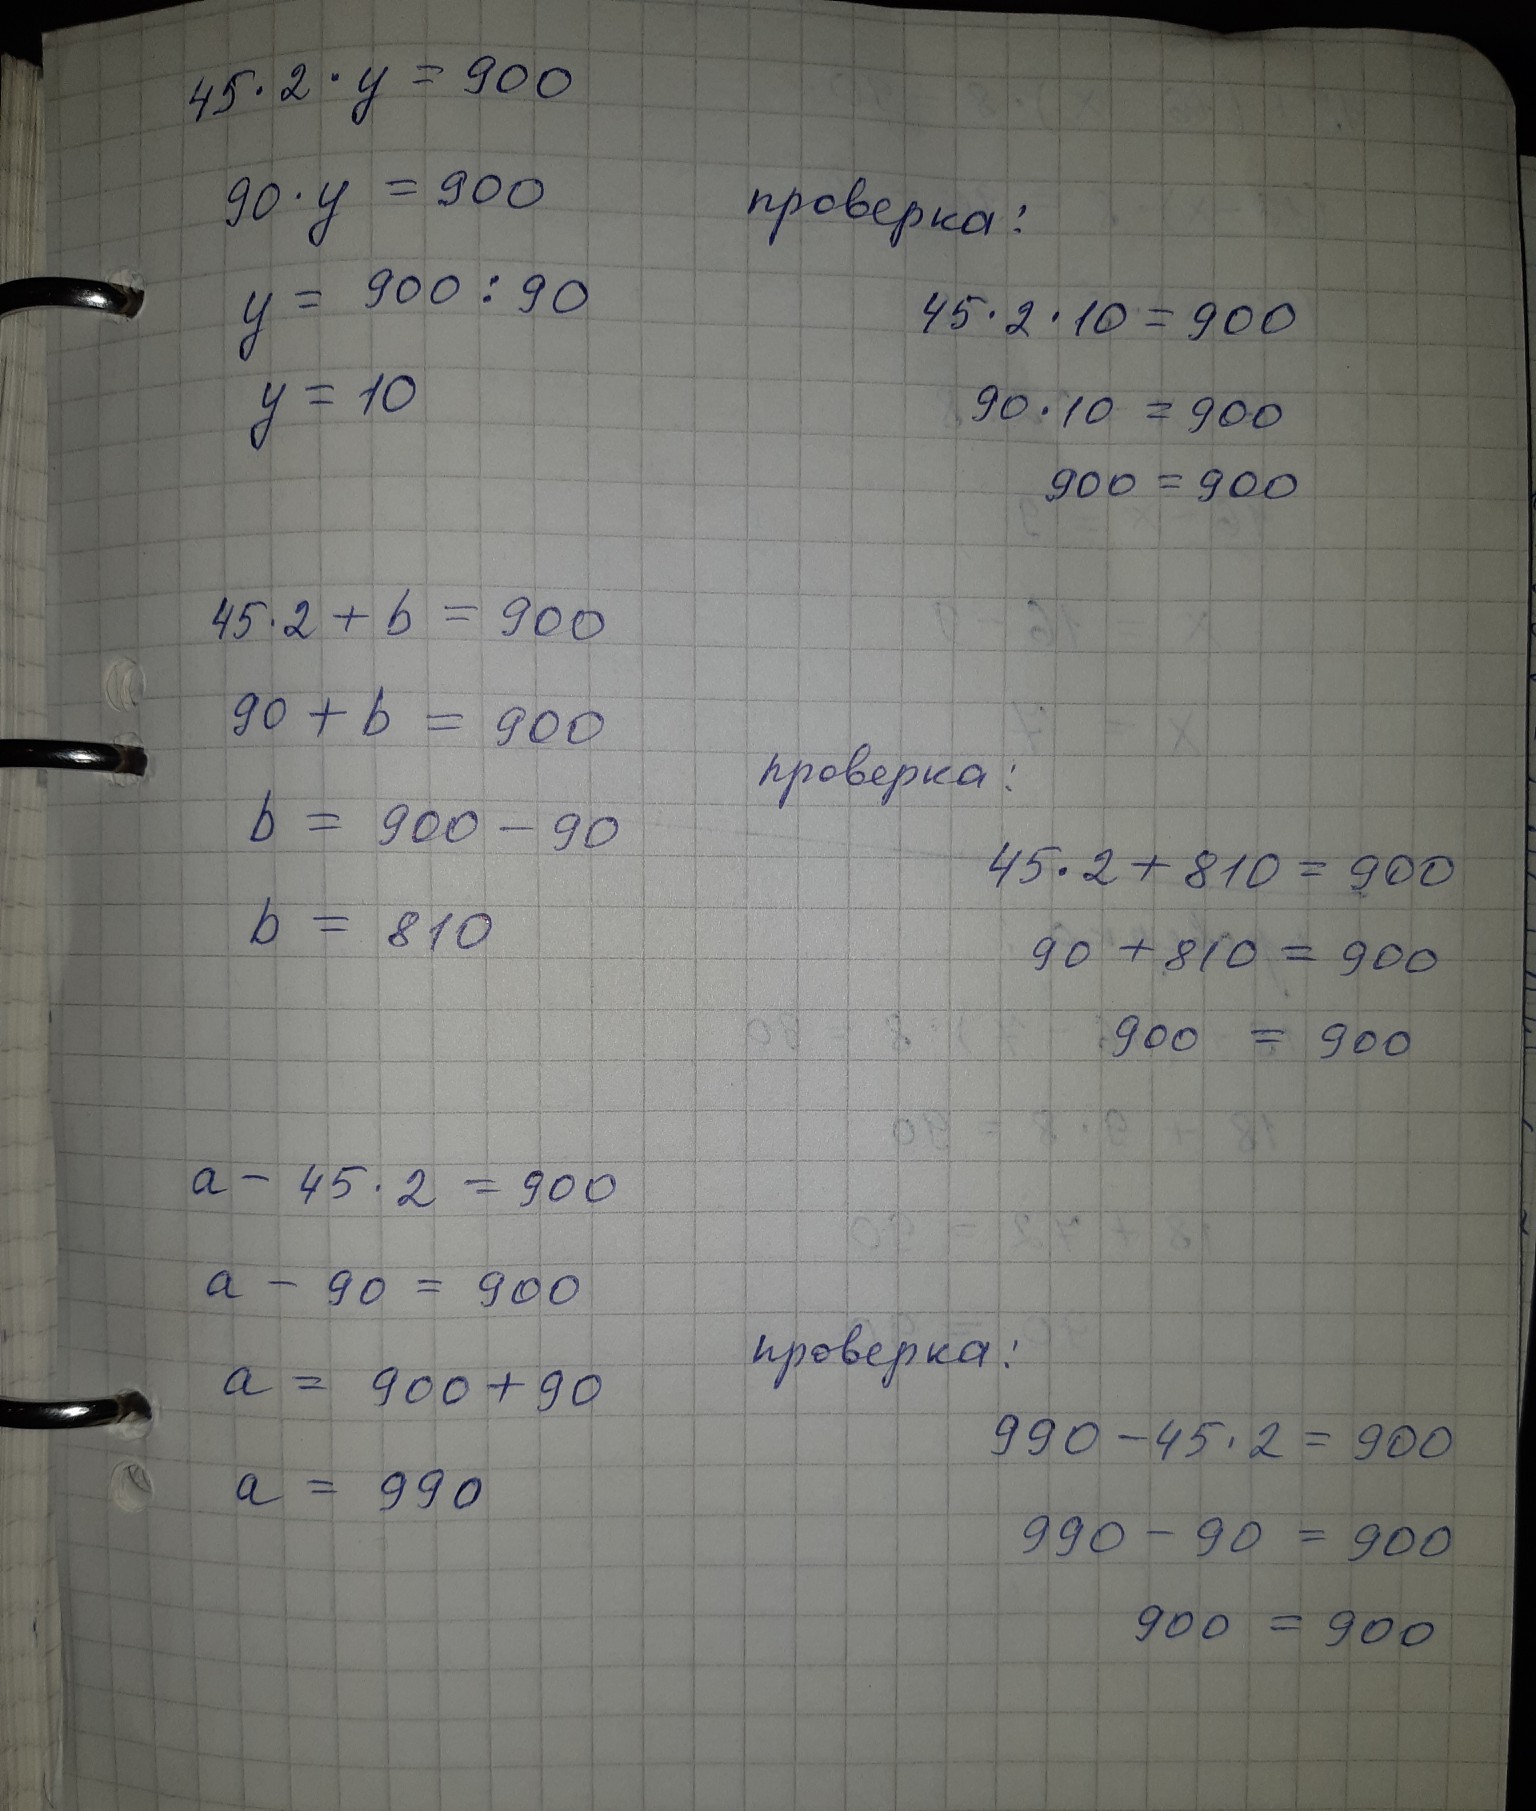 45·2·y = 900
90·y = 900
y = 900:90
y = 10
проверка:
45·2·10 = 900
90·10 = 900
900 = 900
45·2+b = 900
90+b = 900
b = 900-90
b = 810
проверка:
45·2+810 = 900
90+810 = 900
900 = 900
a - 45·2 = 900
a - 90 = 900
a = 900+90
a = 990
проверка:
990-45·2 = 900
990-90 = 900
900 = 900